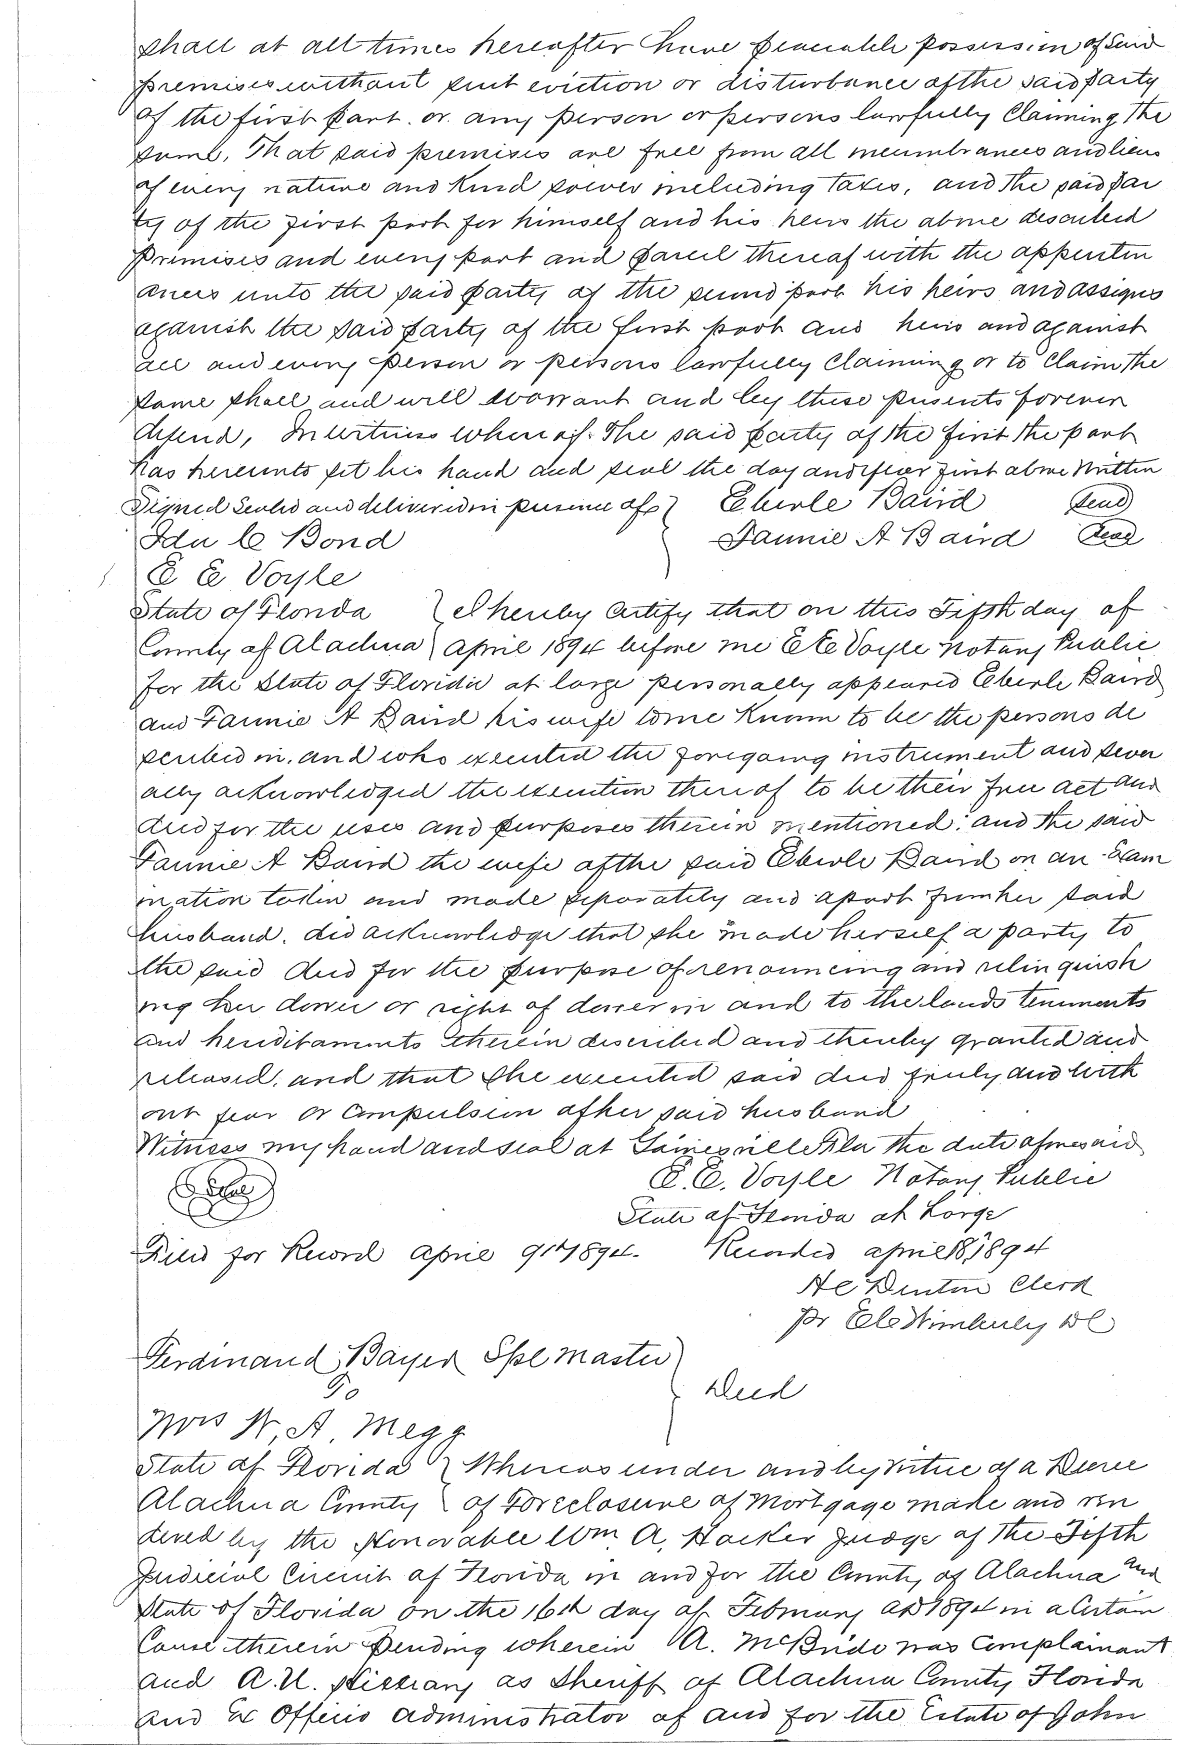 shall at all times hereafter have peaceable possession of said
premises without suit eviction or disturbance of the said party
of the first part. or any person or persons lawfully Claiming the
same, That said premises are free from all incumbrances and liens
of every nature and Kind soever including Taxes, and the said par
ty of the first part for himself and his heirs the above described
Premises and every part and parcel thereof with the appurten
ances unto the said party of the second part his heirs and assigns
against the said party of the first part and heirs and against
all and every person or persons lawfully Claiming or to Claim the
same shall and will warrant and by these presents forever
defend, In witness whereof. The said party of the first the part
has hereunto set his hand and seal the day and year first above Written
Signed Sealed and delivered in presence of } Eberle Baird Seal
Ida C Bond Fannie A Baird Seal
E E Voyle
State of Florida } I hereby Certify that on this Fifth day of
County of Alachua } April 1894 before me E E Voyle Notary Public
for the State of Florida at large personally appeared Eberle Baird
and Fannie A Baird his wife to me Known to be the persons de
scribed in. and who executed the foregoing instrument and sever
ally acknowledged the execution thereof to be their free act and
deed for the uses and purposes therein mentioned: and the said
Fannie A Baird the wife of the said Eberle Baird on an Exam
ination taken and made separately and apart from her said
husband. did acknowledge that she made herself a party to
the said deed for the purpose of renouncing and relinquish
ing her dower or right of dower in and to the lands tenements
and hereditaments therein described and thereby granted and
released, and that she executed said deed freely and with
out fear or Compulsion of her said husband
Witness my hand and seal at Gainesville Fla the date aforesaid
Seal E. E. Voyle Notary Public
State of Florida at Large
Filed for Record April 9th 1894. Recorded April 18, 1894
H C Denton Clerk
pr Wimberly DC
Ferdinand Bayer Spl Master }
To } Deed
Mrs W. A. Megg
State of Florida } Whereas under and by virtue of a Decree
Alachua County } of Foreclosure of Mortgage made and ren
dered by the Honorable Wm A. Hocker Judge of the Fifth
Judicial Circuit of Florida in and for the County of Alachua and
State of Florida on the 16th day of February AD 1894 in a Certain
Cause therein pending wherein A. McBride was Complainant
and A. U. as Sheriff of Alachua County Florida
and Ex Officio Administrator of and for the Estate of John